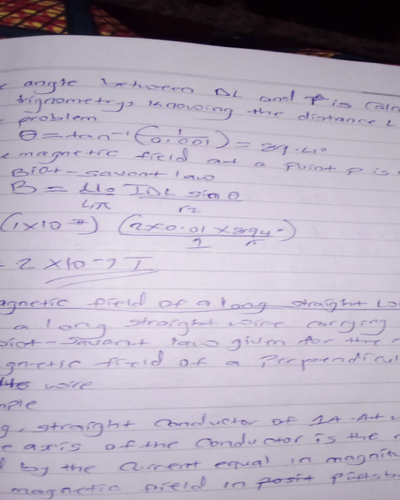 angle between DL and P is calc
trignometry, knowing the distance
problem
θ = tan⁻¹ (1/0.001) =
magnetic field at a point P is
Biot-Savant law
B = μ₀/4π IDL sinθ/r²
(1×10⁻⁷) (2×0.01×
= 2×10⁻⁷ T
agnetic field of a long straight
a long straight wire carrying
biot-Savant law given for the
gnetic field of a perpendicul
wire
mple
g, straight conductor of 1A. At
e axis of the conductor is the
d by the current equal in magnit
magnetic field in